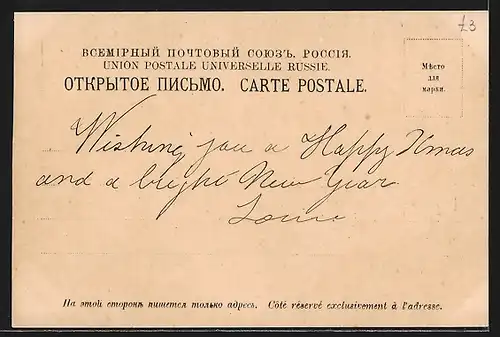 £3
ВСЕМІРНЫЙ ПОЧТОВЫЙ СОЮЗЪ. РОССІЯ.
UNION POSTALE UNIVERSELLE RUSSIE.
ОТКРЫТОЕ ПИСЬМО. CARTE POSTALE.
Мѣсто
для
марки.
Wishing you a Happy Xmas
and a bright New Year
На этой сторонѣ пишется только адресъ. Côté réservé exclusivement à l'adresse.